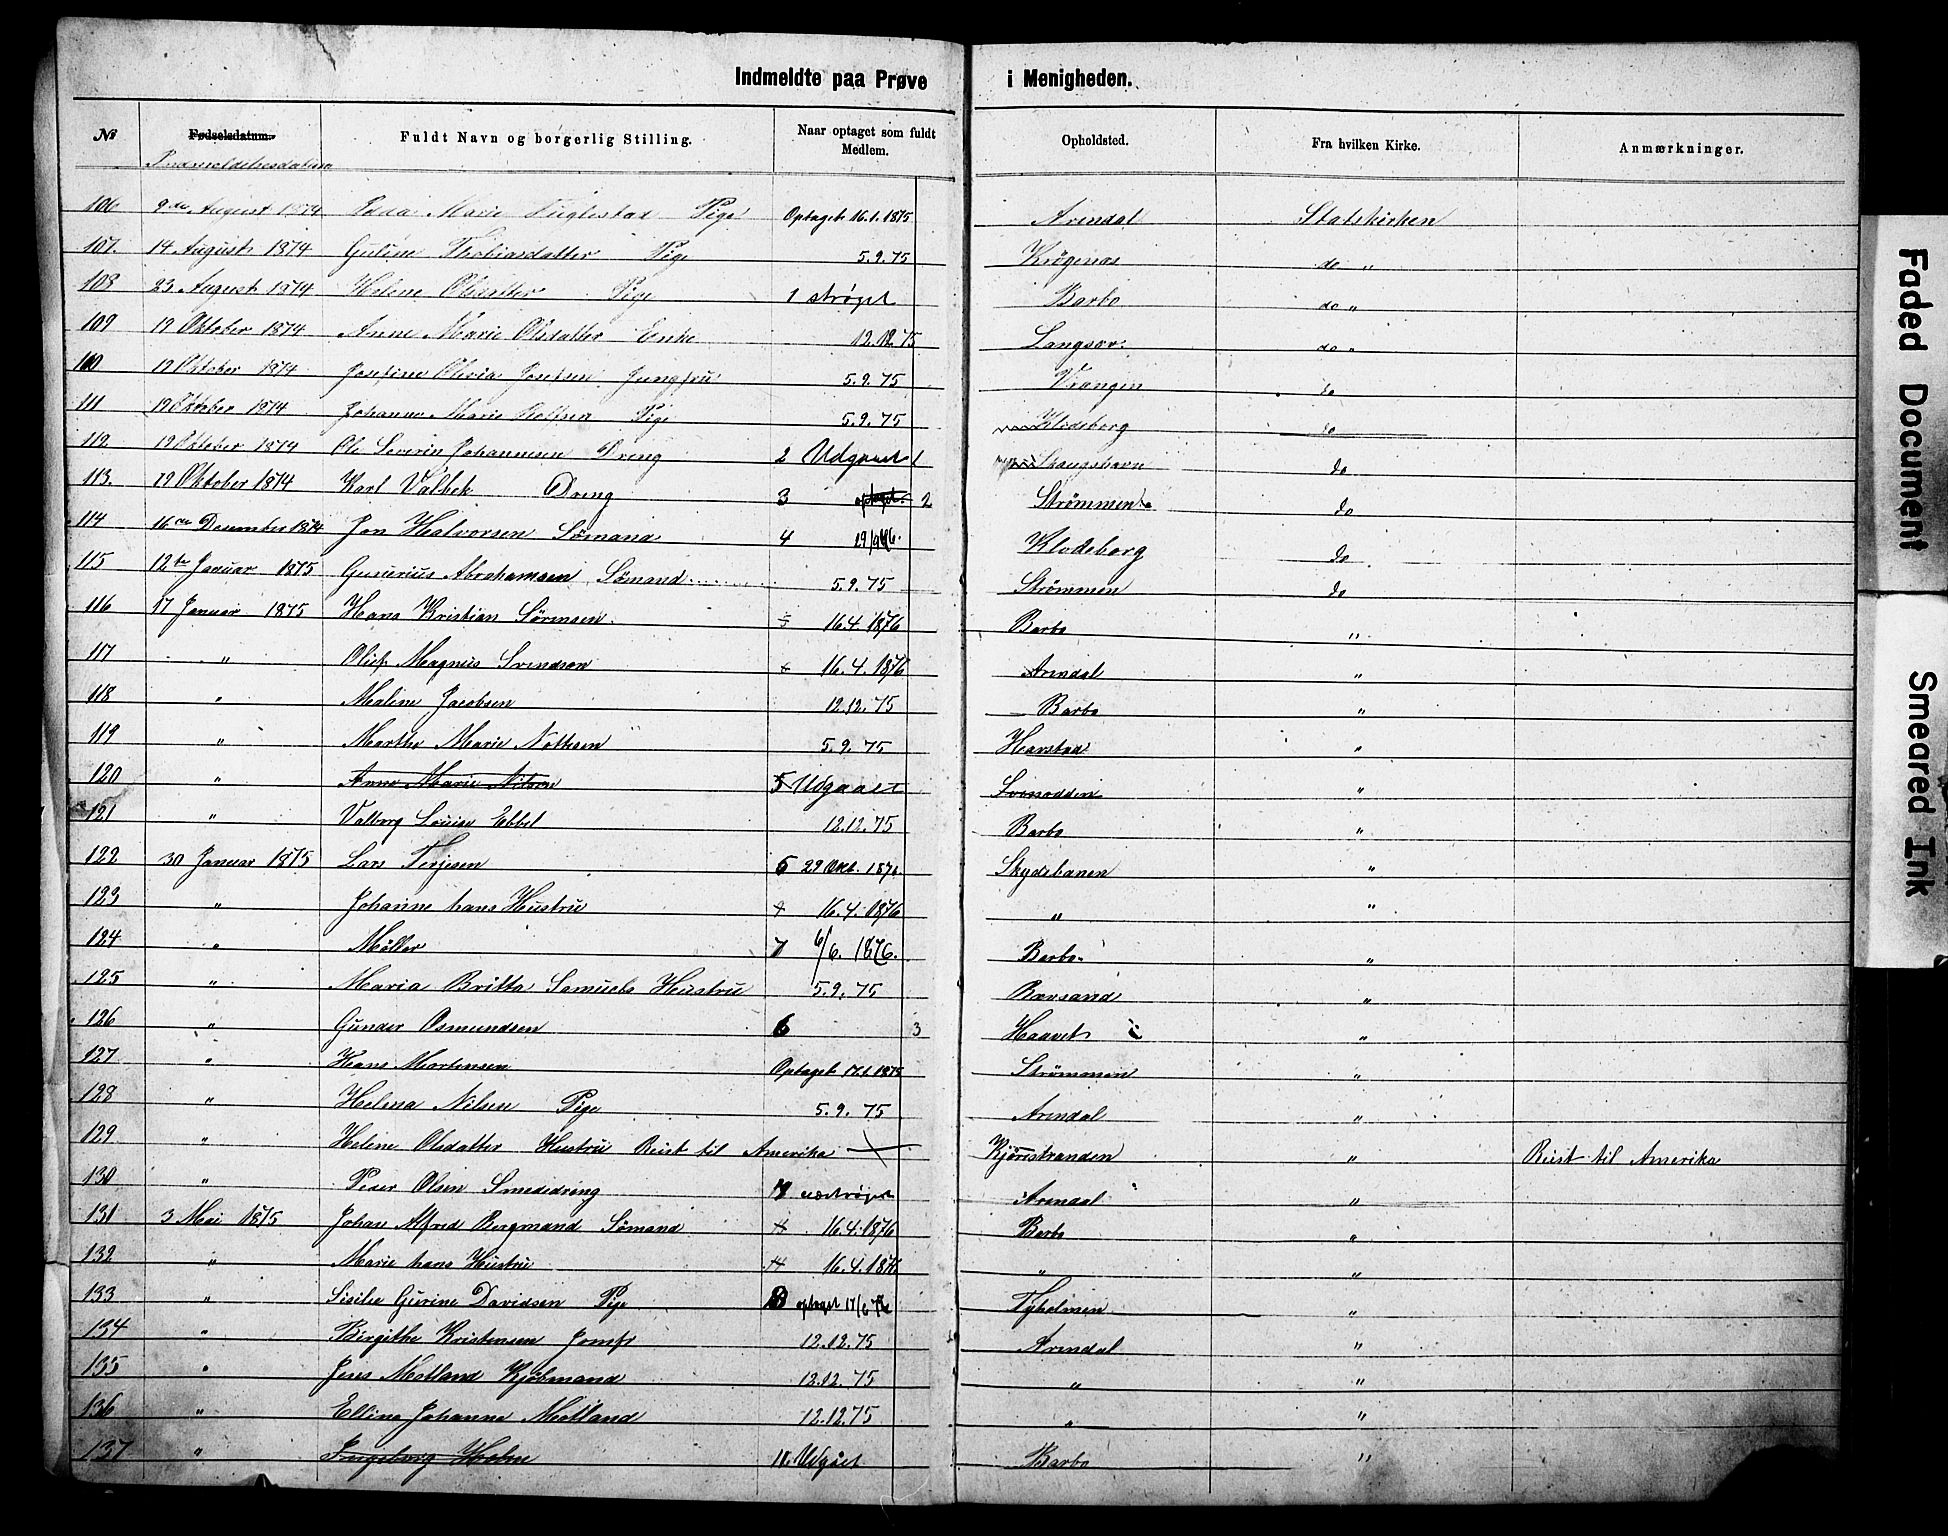 Indmeldte paa Prøve i Menigheden.
No Fødselsdatum. Fuldt Navn og borgerlig Stilling. Naar optaget som fuldt Medlem. Opholdsted. Fra hvilken Kirke. Anmærkninger.
Indmeldelsesdatum
106 9de August 1874 Marie Fuglestad Pige Optaget 16.1.1875 Arendal Statskirken
107. 14 August 1874 Guline Thobiasdatter Pige 5.9.75 Krøgenæs do "
108 23 August 1874 Helene Olsdatter Pige 1 strøget Barbo do "
109 19 Oktober 1874 Anne Marie Olsdatter Enke 12.12.75 Langsæv. do "
110 19 Oktober 1874 Josefine Olivia Josefsen Jungfru 5.9.75 Vrangen do
111 19 Oktober 1874 Johanne Marie Pige 5.9.75 Klodeborg do
112 19 Oktober 1874 Ole Severin Johannesen Dreng 2 Udgaaet 1 do
113. 19 Oktober 1874 Karl Valbek Dreng 3 optaget 2 Strømmen do
114 16de Desember 1874 Jon Halvorsen Sømand 4 Klodeborg do
115 12te Januar 1875 Gunerius Abrahamsen Sømand 5.9.75 Strømmen do
116 17 Januar 1875 Hans Kristian Sørensen. 16.4.1876 Barbo "
117 " Oluf Magnus Svendson 16.4.1876 Arendal "
118 " Maline Jacobsen 12.12.75 Barbo "
119 " Marthe Marie Nothsen 5.9.75 Harstad "
120 " Anne Marie Nilsen 5 Udgaaet Svenodden "
121 " Valborg Louise Ebbel 12.12.75 Barbo "
122 30 Januar 1875 Lars Terjesen 6 29 Okt. 1876 Skydebanen "
123 " Johanne hans Hustru 16.4.1876 " "
124 " Møller 7 6/6. 1876. Barbo "
125 " Maria Britta Samuels Hustru 5.9.75 Revsand "
126 " Gunder Osmundsen 6 3 Haavet "
127 " Hans Mortensen Optaget 17.1.1875 Strømmen "
128 " Helena Nilsen Pige 5.9.75 Arendal "
129 " Helene Olsdatter Hustru Reist til Amerika Kjøristranden " Reist til Amerika
130 " Peder Olsen Smededreng Arendal "
131 3 Mai 1875 Johan Alfred Bergmand Sømand 16.4.1876 Barbo "
132 " Marie hans Hustru 16.4.1876 " "
133 " Sisilie Gurine Davidsen Pige optaget 17/6 76 Tyholmen "
134 " Birgithe Kristensen Jomfr 12.12.75 Arendal "
135 " Jens Metland Kjøbmand 12.12.75 " "
136 " Elline Johanne Metland 12.12.75 " "
137 " Ingeborg Holm Udgået Barbo "
Faded Document
Smeared Ink